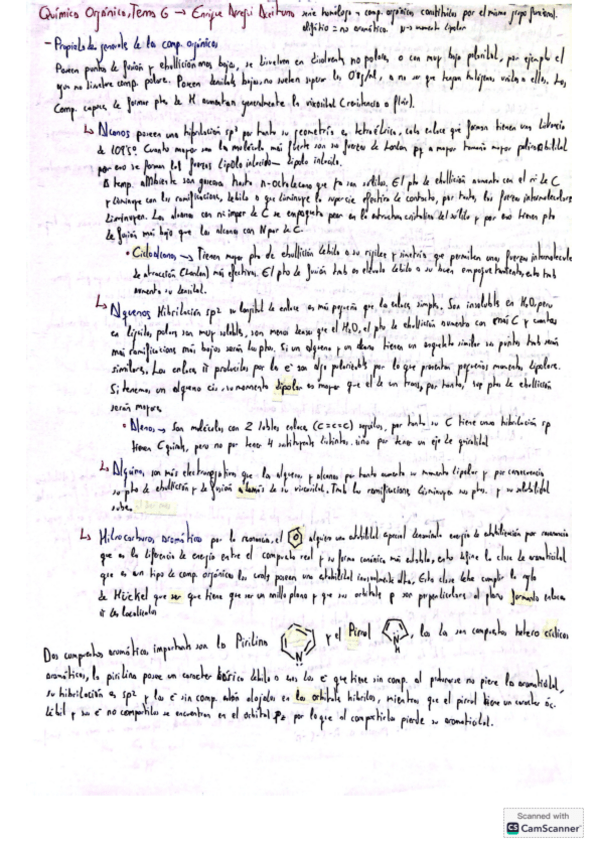 Química Orgánica, Tema 6 → Enrique Arregui Aceituno serie homóloga → comp. orgánicos constituidos por el mismo grupo funcional.
alifático = no aromático. μ → momento dipolar
- Propiedades generales de los comp. orgánicos
Poseen puntos de fusión y ebullición mas bajos, se disuelven en disolventes no polares, o con muy baja polaridad, por ejemplo el
agua no disuelve comp. polares. Poseen densidades bajas, no suelen superar los 0'8g/ml, a no ser que tengan halógenos unidos a ellos. Los
Comp. capaces de formar pts de H aumentan generalmente la viscosidad (resistencia a fluir).
↳ Alcanos poseen una hibridación sp3 por tanto su geometría es tetraédrica, cada enlace que forman tienen una distancia
de 109'5º Cuanto mayor sea la molécula más fuerte son sus fuerzas de London pq a mayor tamaño mayor polarizabilidad
por eso se forman las fuerzas dipolo inducido - dipolo inducido.
A temp. ambiente son gaseosos hasta n-octadecano que ya son sólidos. El pto de ebullición aumenta con el nº de C
y disminuye con las ramificaciones, debido a que disminuye la superficie efectiva de contacto, por tanto, las fuerzas intermoleculares
disminuyen. Los alcanos con nº impar de C se empaquetan peor en la estructura cristalina del sólido y por eso tienen pto
de fusión más bajo que los alcanos con N par de C.
• Cicloalcanos → Tienen mayor pto de ebullición debido a su rigidez y simetría que permiten unas fuerzas intermoleculares
de atracción (London) más efectivas. El pto de fusión tmb es elevado debido a su buen empaquetamiento, esto tmb
aumenta su densidad.
↳ Alquenos Hibridación sp2 su longitud de enlace es más pequeña que la enlace simple. Son insolubles en H2O, pero
en líquidos polares son muy solubles, son menos densos que el H2O, el pto de ebullición aumenta con el nº C y cuantas
más ramificaciones más bajos serán los ptos. Si un alqueno y un alcano tienen un esqueleto similar sus puntos tmb serán
similares. Los enlaces π producidos por los e- son algo polarizables por lo que presentan pequeños momentos dipolares.
Si tenemos un alqueno cis, su momento dipolar es mayor que el de un trans, por tanto, sus ptos de ebullición
serán mayores
• Alenos → Son moléculas con 2 dobles enlaces (C=C=C) seguidos, por tanto su C tiene una hibridación sp
tienen C quirales, pero no por tener 4 sustituyentes distintos. sino por tener un eje de quiralidad
↳ Alquinos, son más electronegativos que los alquenos, y alcanos por tanto aumenta su momento dipolar y por consecuencia
su pto de ebullición y de fusión además de su viscosidad. Tmb las ramificaciones disminuyen sus ptos. y su solubilidad
sube.
↳ Hidrocarburos Aromáticos por la resonancia, el adquiere una estabilidad especial denominada energía de estabilización por resonancia
que es la diferencia de energía entre el compuesto real y su forma canónica más estable, esto define la clase de aromaticidad
que es un tipo de comp. orgánicos los cuales poseen una estabilidad inusualmente alta. Esta clase debe cumplir la regla
de Hückel que ser que tiene que ser un anillo plano y que sus orbitales p sean perpendiculares al plano formando enlaces
π deslocalizados
Dos compuestos aromáticos importantes son la Piridina N y el Pirrol N H, los dos son compuestos heterocíclicos
aromáticos, la piridina posee un caracter básico debido a que los e- que tiene sin comp. al protonarse no pierde la aromaticidad,
su hibridación es sp2 y los e- sin comp. están alojados en los orbitales híbridos, mientras que el pirrol tiene un caracter ác.
débil y sus e- no compartidos se encuentran en el orbital pz por lo que al compartirlos pierde su aromaticidad.
Scanned with
CS CamScanner